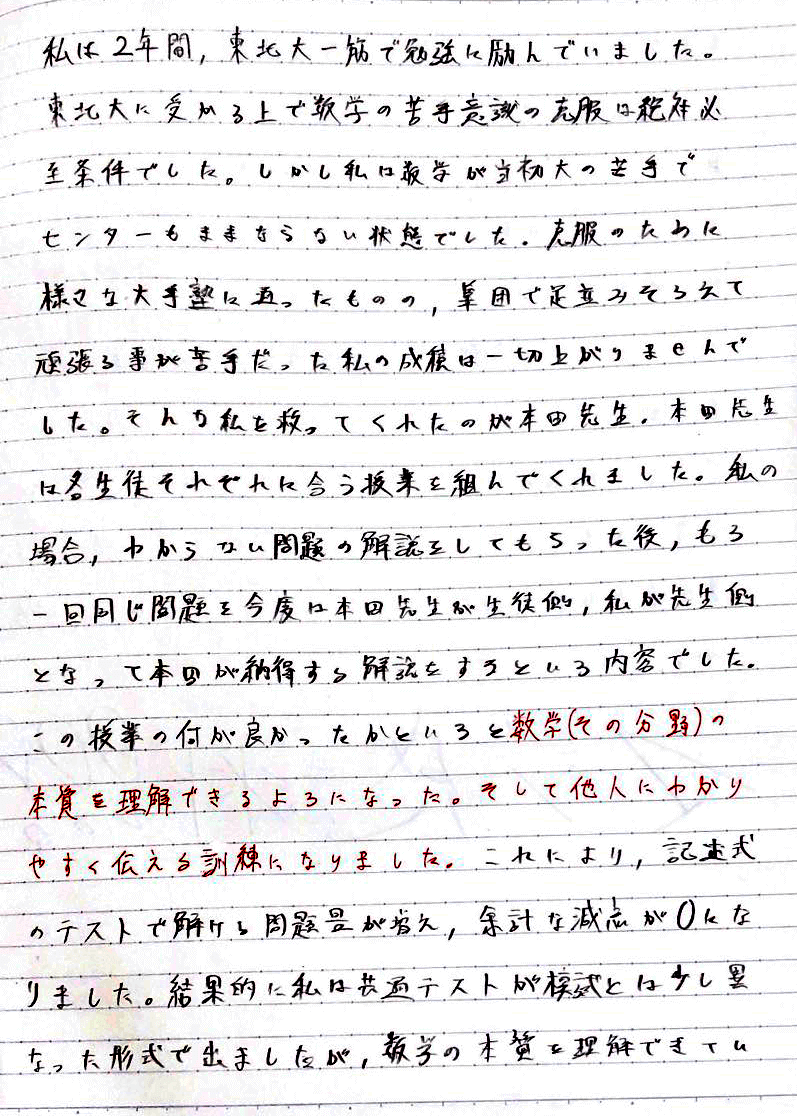 私は2年間,東北大一筋で勉強に励んでいました。
東北大に受かる上で数学の苦手意識の克服は絶対必
至条件でした。しかし私は数学が当初大の苦手で
センターもままならない状態でした。克服のために
様々な大手塾に通ったものの,集団で足並みそろえて
頑張る事が苦手だった私の成績は一切上がりませんで
した。そんな私を救ってくれたのが本田先生。本田先生
は各生徒それぞれに合う授業を組んでくれました。私の
場合,わからない問題の解説をしてもらった後,もう
一回同じ問題を今度は本田先生が生徒側,私が先生側
となって本田が納得する解説をするという内容でした。
この授業の何が良かったかというと数学(その分野)の
本質を理解できるようになった。そして他人にわかり
やすく伝える訓練になりました。これにより,記述式
のテストで解ける問題量が増え,余計な減点が0にな
りました。結果的に私は共通テストが模試とは少し異
なった形式で出ましたが,数学の本質を理解できてい